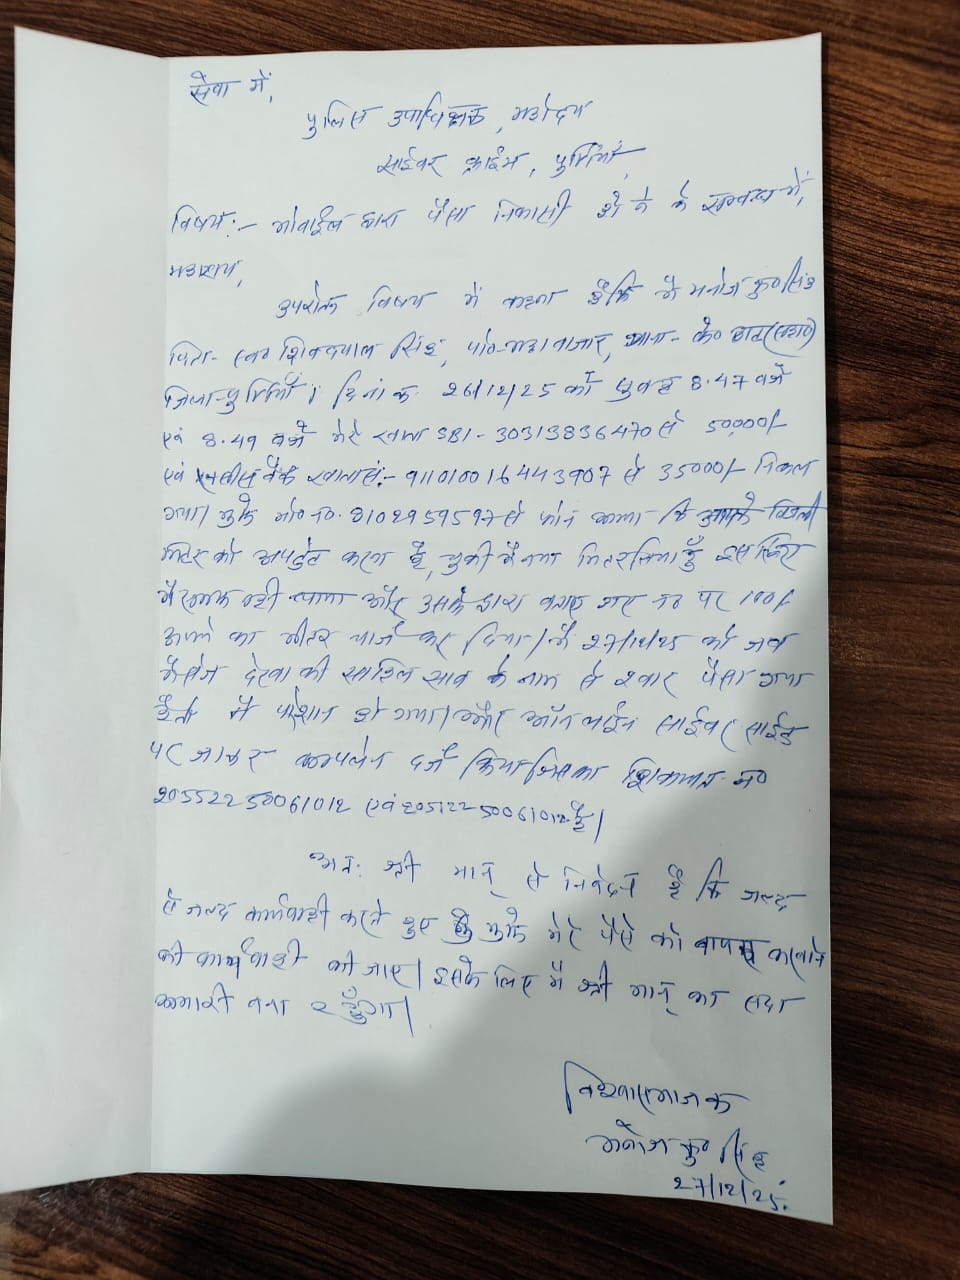 सेवा में,
पुलिस उपाधिक्षक, महोदय
साईबर क्राईम, पुर्णियाँ,
विषय:- मोबाईल द्वारा पैसा निकासी होने के सम्बन्ध में,
महाशय,
उपरोक्त विषय में कहना है कि मैं मनोज कु० सिंह
पिता- स्व० शिवदयाल सिंह, पो०- बाजार, थाना- के० हाट (सहा०)
जिला- पुर्णियाँ। दिनांक 26/12/25 को सुबह 8.47 बजे
एवं 8.49 बजे मेरे खाता SBI - 30313836470 से 50,000/-
एवं बैंक खाता सं:- 911010016443907 से 35000/- निकल
गया। मुझे मो० न०. 8102959597 से फोन आया कि आपके बिजली
मिटर को अपडेट करना है, चुकी मैं नया मिटर लिया हुँ इस लिए
मैं समझ नही पाया और उसके द्वारा बताए गए न० पर 100/-
रूपये का मीटर चार्ज कर दिया। मैं 27/12/25 को जब
मैसेज देखा की साहिल साव के नाम से २ बार पैसा गया
है तो मैं परेशान हो गया। और ऑन लाईन साईबर साईड
पर जाकर कम्पलेन दर्ज किया जिसका शिकायत न०
20552250061012 एवं 20512250061012 है।
अत: श्री मान् से निवेदन है कि जल्द
से जल्द कार्यवाही करते हुए मुझे मेरे पैसे को वापस करवाने
की कार्यवाही की जाए। इसके लिए मैं श्री मान् का सदा
आभारी बना रहुँगा।
विश्वासभाजक
मनोज कु० सिंह
27/12/25.